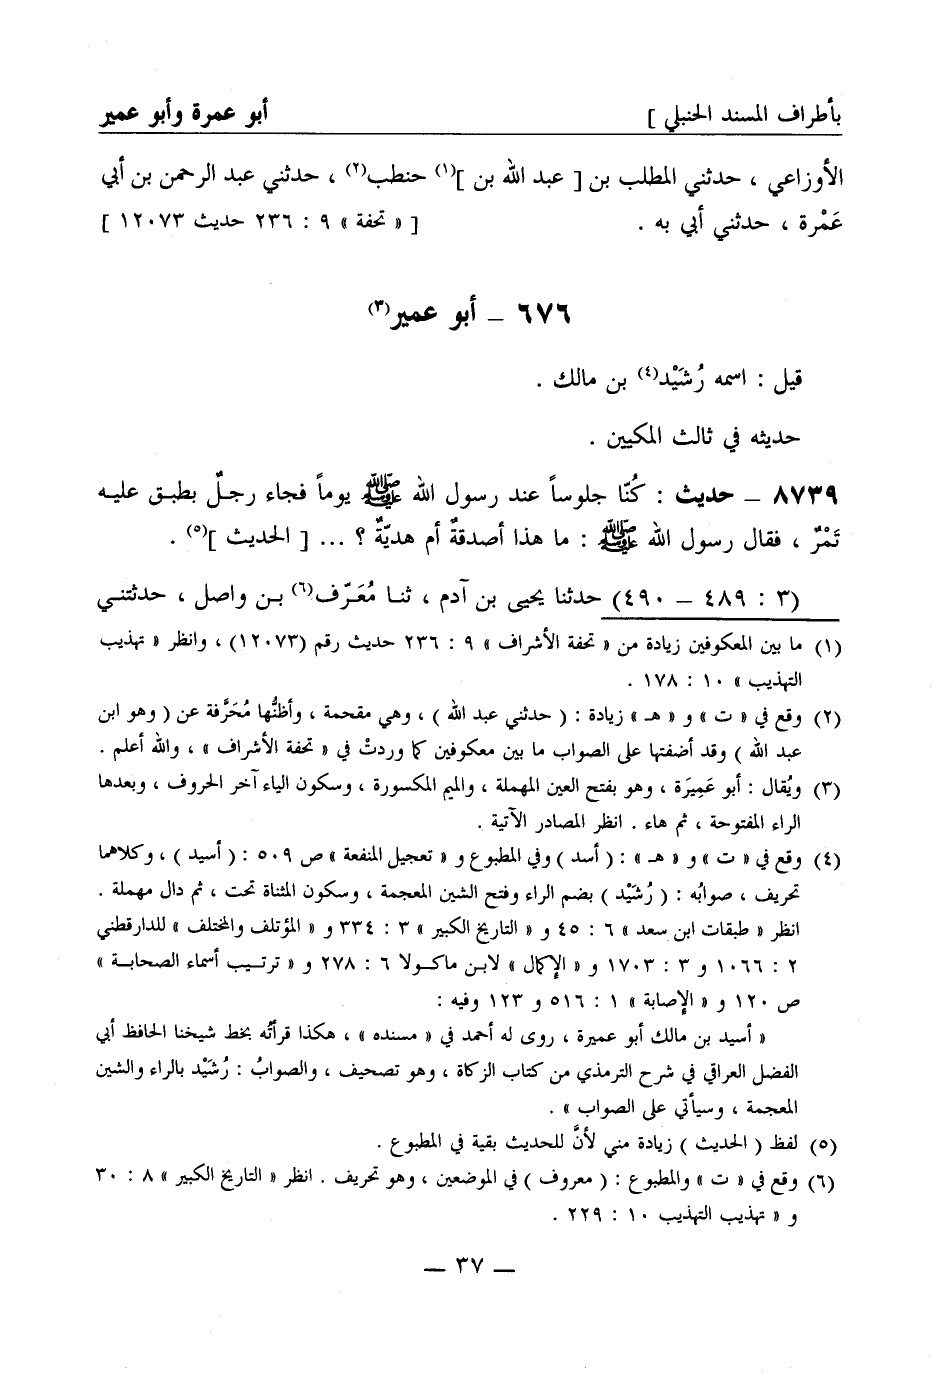 بأطراف المسند الحنبلي ] أبو عمرة وأبو عمير
الأوزاعي ، حدثني المطلب بن [ عبد الله بن ](١) حنطب(٢) ، حدثني عبد الرحمن بن أبي
عَمْرة ، حدثني أبي به . [ « تحفة » ٩ : ٢٣٦ حديث ١٢٠٧٣ ]
٦٧٦ – أبو عمير(٣)
قيل : اسمه رُشَيْد(٤) بن مالك .
حديثه في ثالث المكيين .
٨٧٣٩ – حديث : كُنّا جلوساً عند رسول الله ﷺ يوماً فجاء رجلٌ بطبق عليه
تَمْرٌ ، فقال رسول الله ﷺ : ما هذا أصدقةٌ أم هديّةٌ ؟ ... [ الحديث ](٥) .
(٣ : ٤٨٩ – ٤٩٠) حدثنا يحيى بن آدم ، ثنا مُعَرّف(٦) بن واصل ، حدثتني
(١) ما بين المعكوفين زيادة من « تحفة الأشراف » ٩ : ٢٣٦ حديث رقم (١٢٠٧٣) ، وانظر « تهذيب
التهذيب » ١٠ : ١٧٨ .
(٢) وقع في « ت » و « هـ » زيادة : ( حدثني عبد الله ) ، وهي مقحمة ، وأظنُّها مُحَرَّفة عن ( وهو ابن
عبد الله ) وقد أضفتها على الصواب ما بين معكوفين كما وردتْ في « تحفة الأشراف » ، والله أعلم .
(٣) ويُقال : أبو عَمِيرَة ، وهو بفتح العين المهملة ، والميم المكسورة ، وسكون الياء آخر الحروف ، وبعدها
الراء المفتوحة ، ثم هاء . انظر المصادر الآتية .
(٤) وقع في « ت » و « هـ » : ( أسد ) وفي المطبوع و « تعجيل المنفعة » ص ٥٠٩ : ( أسيد ) ، وكلاهما
تحريف ، صوابُه : ( رُشَيْد ) بضم الراء وفتح الشين المعجمة ، وسكون المثناة تحت ، ثم دال مهملة .
انظر « طبقات ابن سعد » ٦ : ٤٥ و « التاريخ الكبير » ٣ : ٣٣٤ و « المؤتلف والمختلف » للدارقطني
٢ : ١٠٦٦ و ٣ : ١٧٠٣ و « الإكمال » لابن ماكولا ٦ : ٢٧٨ و « ترتيب أسماء الصحابة »
ص ١٢٠ و « الإصابة » ١ : ٥١٦ و ١٢٣ وفيه :
« أسيد بن مالك أبو عميرة ، روى له أحمد في « مسنده » ، هكذا قرأتُه بخط شيخنا الحافظ أبي
الفضل العراقي في شرح الترمذي من كتاب الزكاة ، وهو تصحيف ، والصوابُ : رُشَيْد بالراء والشين
المعجمة ، وسيأتي على الصواب » .
(٥) لفظ ( الحديث ) زيادة مني لأنَّ للحديث بقية في المطبوع .
(٦) وقع في « ت » والمطبوع : ( معروف ) في الموضعين ، وهو تحريف . انظر « التاريخ الكبير » ٨ : ٣٠
و « تهذيب التهذيب ١٠ : ٢٢٩ .
– ٣٧ –